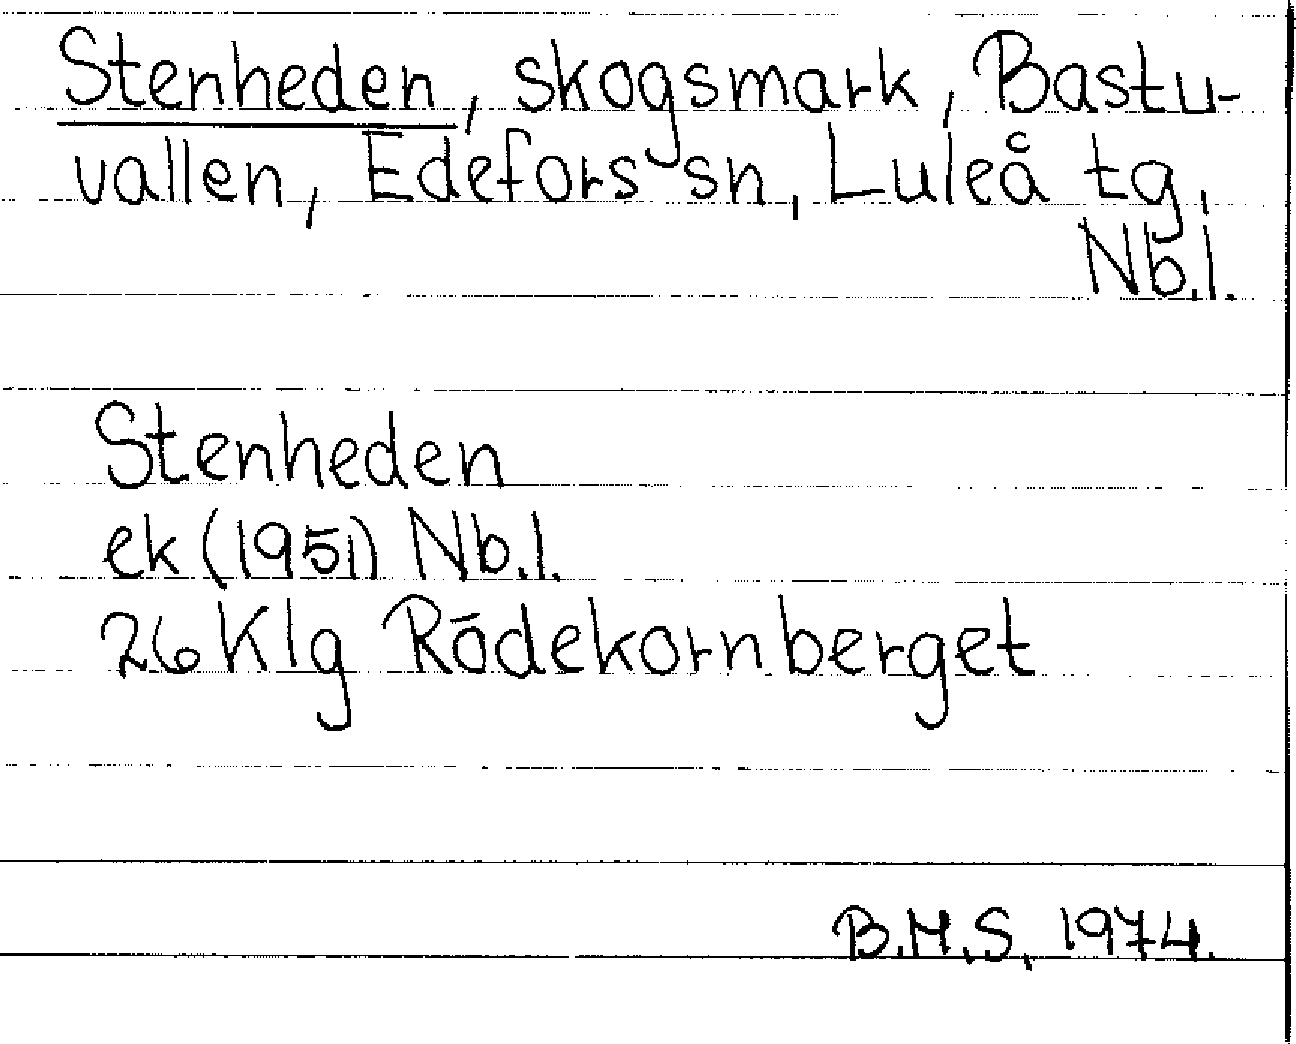 Stenheden, skogsmark, Bastu-
vallen, Edefors sn, Luleå tg,
Nb.l.
Stenheden
ek (1951) Nb.l.
26 Klg Rödekornberget
B.M.S, 1974.